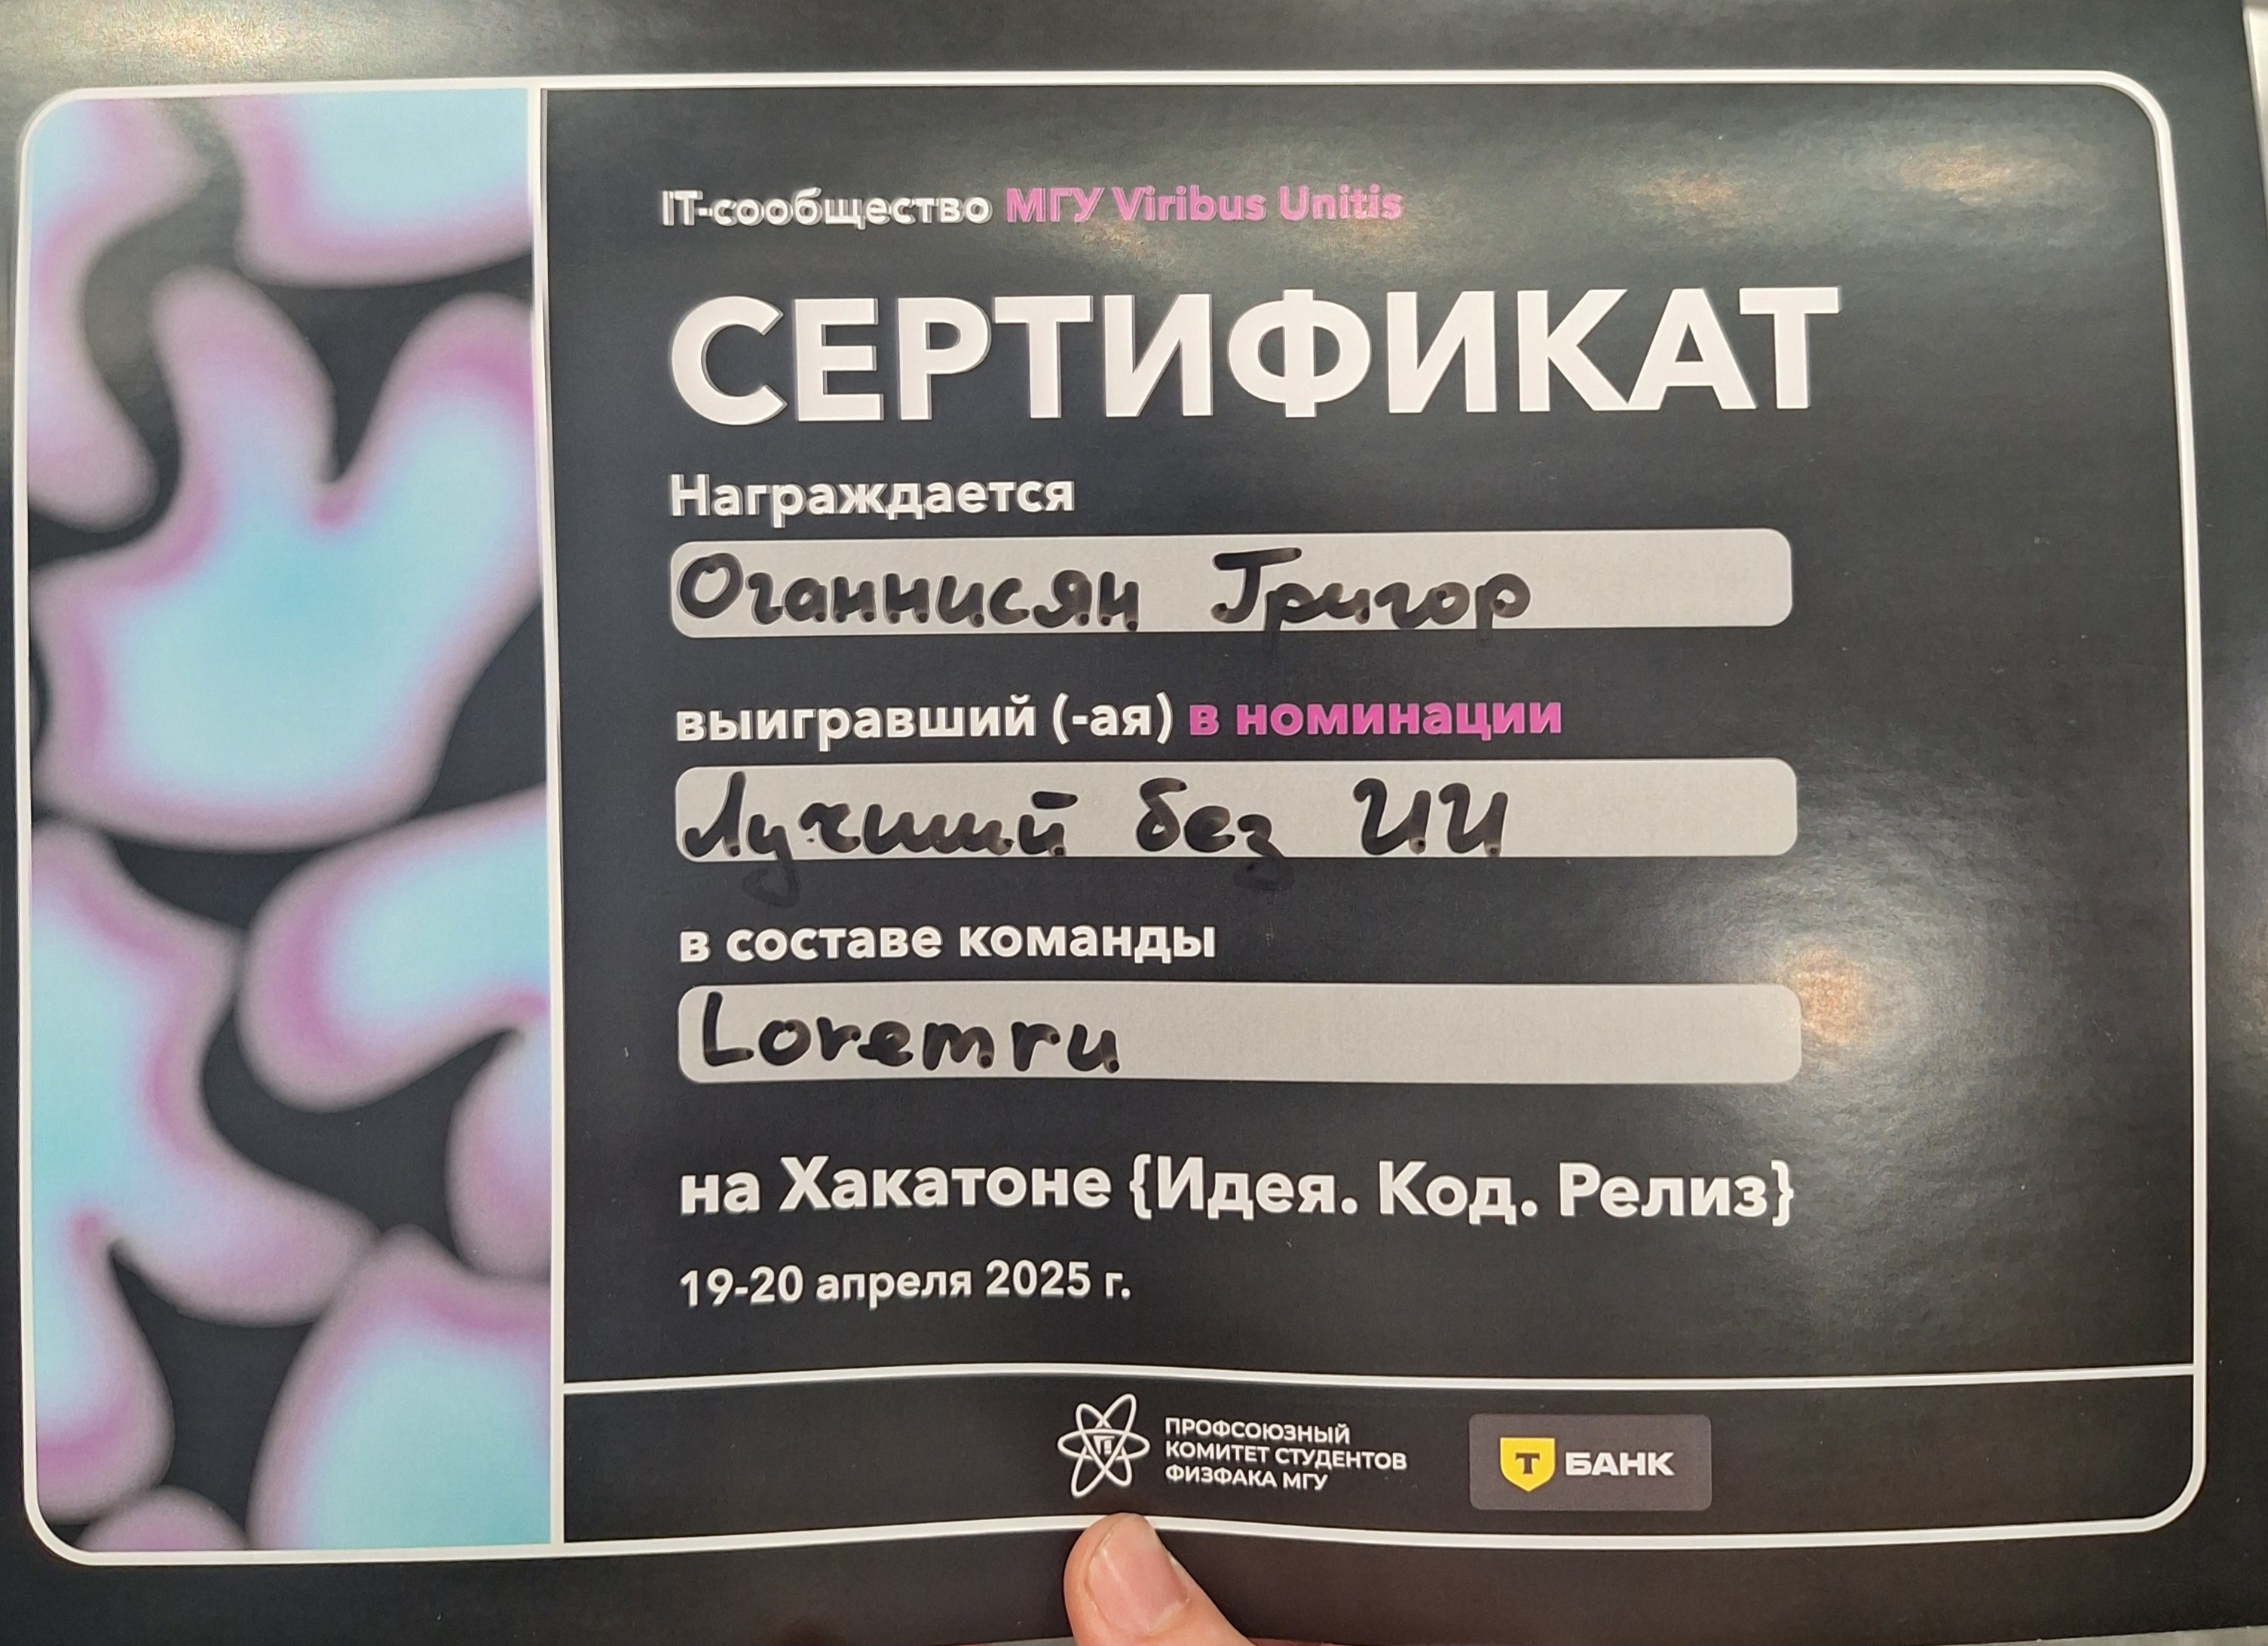 IT-сообщество МГУ Viribus Unitis
СЕРТИФИКАТ
Награждается
Оганнисян Григор
выигравший (-ая) в номинации
Лучший без ИИ
в составе команды
Loremru
на Хакатоне {Идея. Код. Релиз}
19-20 апреля 2025 г.
ПРОФСОЮЗНЫЙ
КОМИТЕТ СТУДЕНТОВ
ФИЗФАКА МГУ
Т БАНК